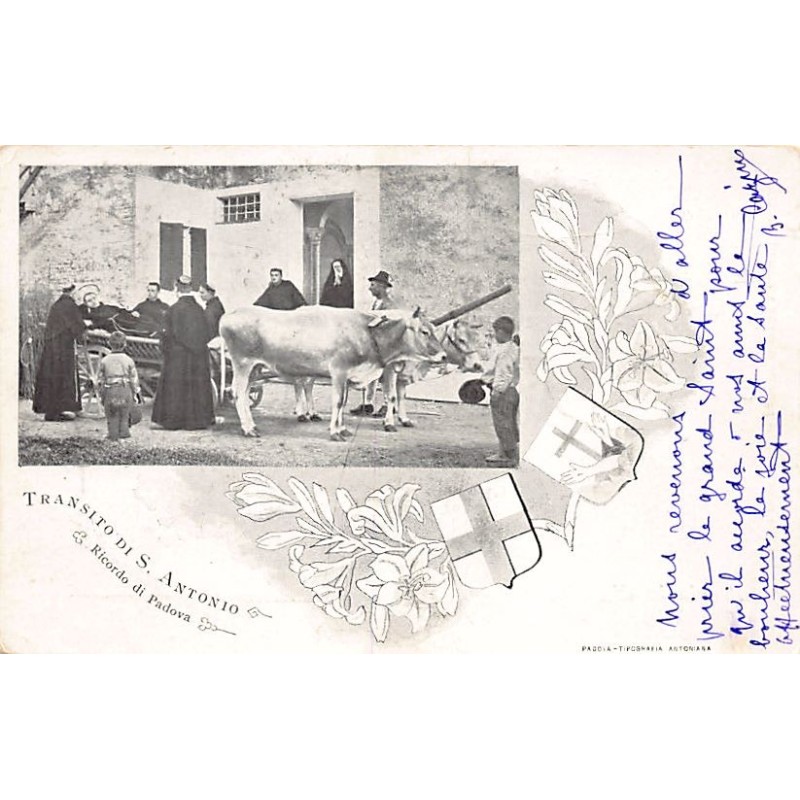 TRANSITO DI S. ANTONIO
Ricordo di Padova
PADOVA - TIPOGRAFIA ANTONIANA
Nous revenons d'aller
prier le grand Saint pour
qu'il accorde à nos amis le
bonheur, la joie et la santé
affectueusement B.